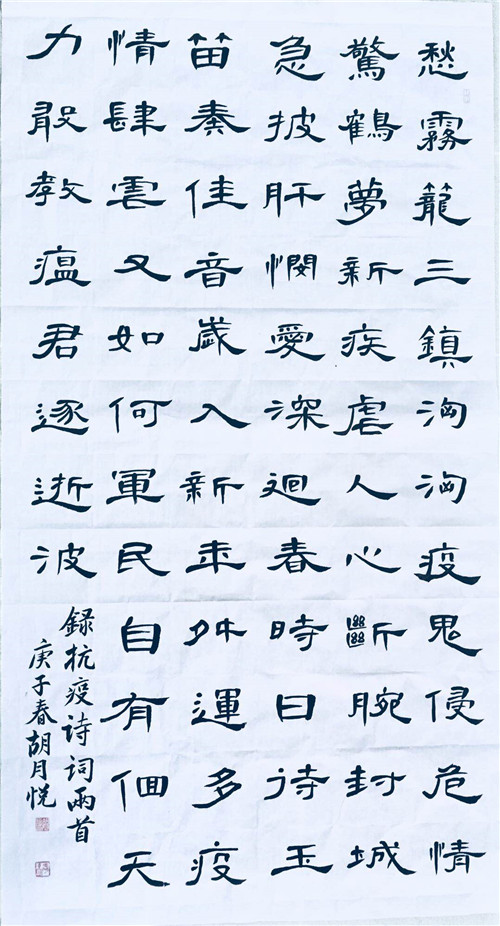 愁霧籠三鎮洶洶疫鬼侵危情
驚鶴夢新疾虐人心斷腕封城
急披肝憫愛深迴春時日待玉
笛奏佳音歲入新来舛運多疫
情肆雲又如何軍民自有佪天
力敢教瘟君逐逝波
録抗疫诗词兩首
庚子春胡月悦